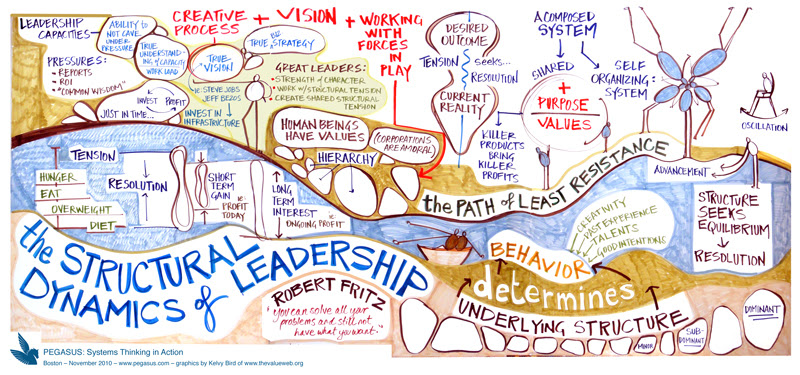 LEADERSHIP
CAPACITIES:
ABILITY TO
NOT CAVE
UNDER
PRESSURE
TRUE
UNDERSTAND-
ING of CAPACITY
WORK LOAD
PRESSURES:
• REPORTS
• ROI
• "COMMON WISDOM"
INVEST PROFIT
JUST IN TIME...
CREATIVE
PROCESS
+ VISION
+ WORKING
WITH
FORCES
IN
PLAY
TRUE
VISION
TRUE STRATEGY
ie: STEVE JOBS
JEFF BEZOS
INVEST IN
INFRASTRUCTURE
GREAT LEADERS:
• STRENGTH of CHARACTER
• WORK W/ STRUCTURAL TENSION
• CREATE SHARED STRUCTURAL
TENSION
HUMAN BEINGS
HAVE VALUES
(CORPORATIONS
ARE AMORAL)
HIERARCHY
DESIRED
OUTCOME
TENSION seeks...
RESOLUTION
CURRENT
REALITY
A COMPOSED
SYSTEM
SHARED
+
PURPOSE
VALUES
SELF
ORGANIZING
SYSTEM
KILLER
PRODUCTS
BRING
KILLER
PROFITS
OSCILLATION
ADVANCEMENT
the PATH of LEAST RESISTANCE
TENSION
RESOLUTION
HUNGER
EAT
OVERWEIGHT
DIET
SHORT
TERM
GAIN
ie:
PROFIT
TODAY
LONG
TERM
INTEREST
ie:
ONGOING PROFIT
STRUCTURE
SEEKS
EQUILIBRIUM
RESOLUTION
CREATIVITY
PAST EXPERIENCE
TALENTS
GOOD INTENTIONS
BEHAVIOR
determines
UNDERLYING STRUCTURE
MINOR
SUB-
DOMINANT
DOMINANT
the STRUCTURAL
DYNAMICS of LEADERSHIP
ROBERT FRITZ
"you can solve all your
problems and still not
have what you want."
PEGASUS: Systems Thinking in Action
Boston – November 2010 – www.pegasus.com – graphics by Kelvy Bird of www.thevalueweb.org